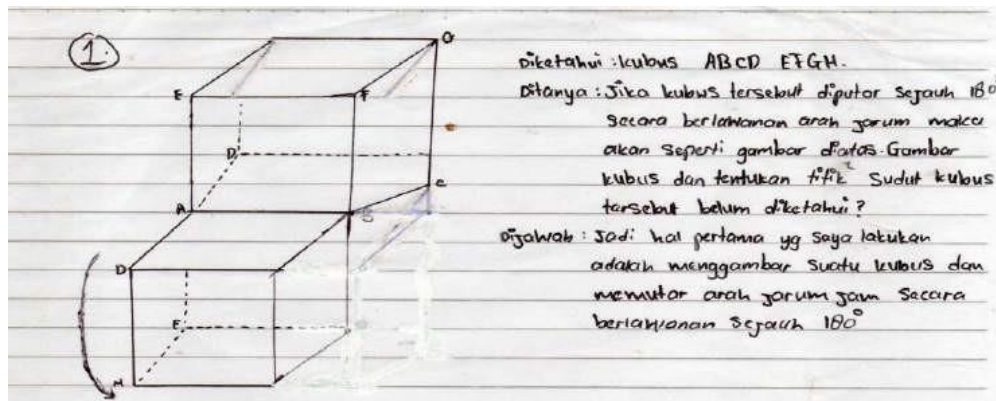 1.
G
E
F
D
A
B
C
D
E
H
Diketahui : kubus ABCD EFGH.
Ditanya : Jika kubus tersebut diputar sejauh 180°
secara berlawanan arah jarum maka
akan seperti gambar diatas. Gambar
kubus dan tentukan titik² sudut kubus
tersebut belum diketahui?
Dijawab : Jadi hal pertama yg saya lakukan
adalah menggambar suatu kubus dan
memutar arah jarum jam secara
berlawanan sejauh 180°